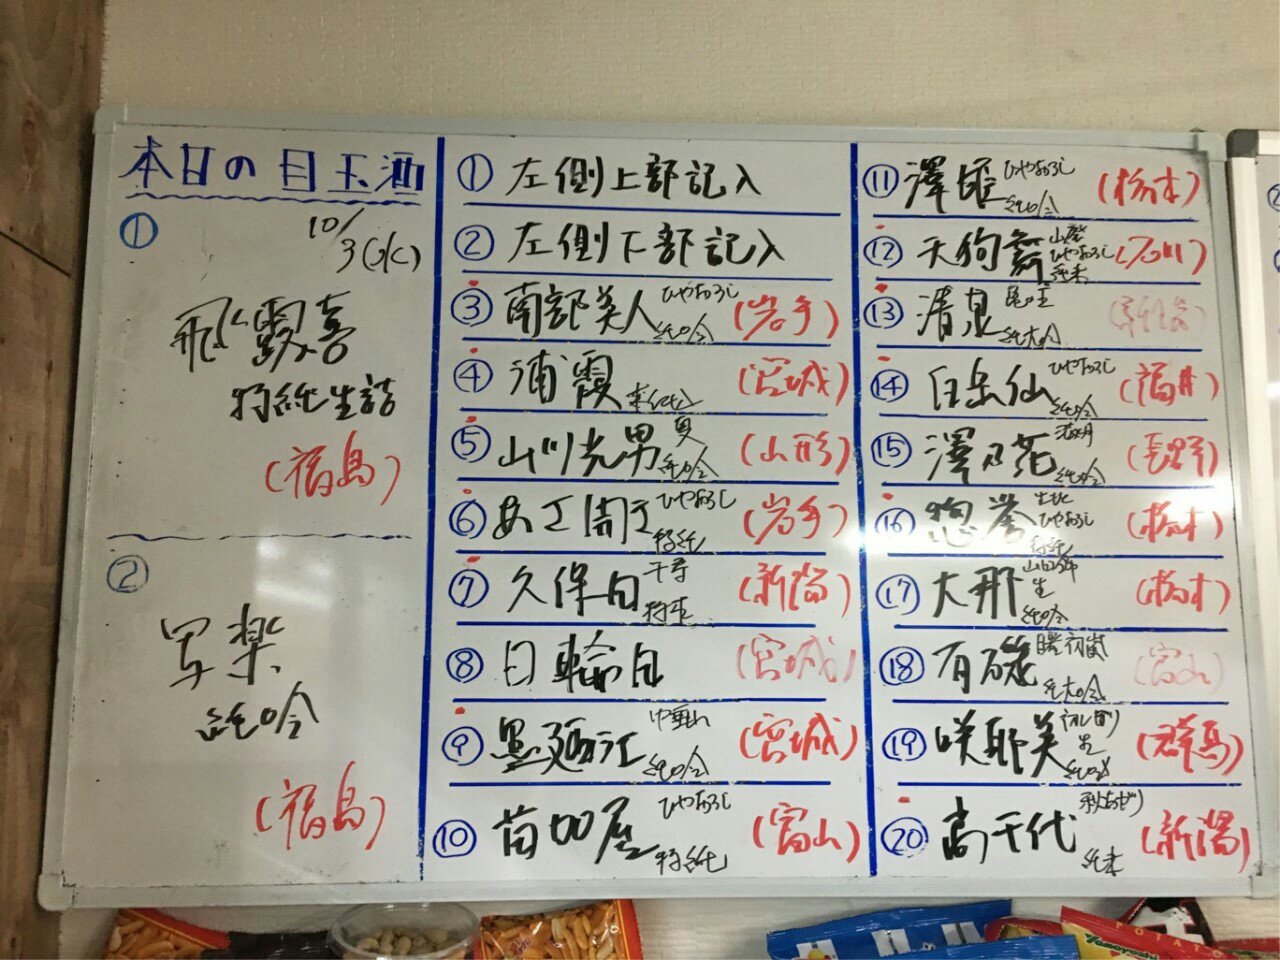 本日の目玉酒
①
10/3(水)
飛露喜
特純生詰
(福島)
②
写楽
純吟
(福島)
① 左側上部記入
② 左側下部記入
③ 南部美人 ひやおろし 純吟 (岩手)
④ 浦霞 (宮城)
⑤ 山川光男 夏 純吟 (山形)
⑥ あさ開 ひやおろし 特純 (岩手)
⑦ 久保田 千寿 (新潟)
⑧ 日輪田 (宮城)
⑨ 墨廼江 中垂れ 純吟 (宮城)
⑩ 苗加屋 ひやおろし 特純 (富山)
⑪ 澤姫 ひやおろし 純吟 (栃木)
⑫ 天狗舞 山廃 ひやおろし 純米 (石川)
⑬ 清泉 純大吟
⑭ 白岳仙 ひやおろし 純吟 (福井)
⑮ 澤乃花 純吟 (長野)
⑯ 惣誉 生酛 ひやおろし 特純 (栃木)
⑰ 大那 生 純吟 (栃木)
⑱ 有磯 曙 初嵐 純大吟 (富山)
⑲ 咲耶美 初しぼり 生 (群馬)
⑳ 高千代 秋あがり 純米 (新潟)
POTATO